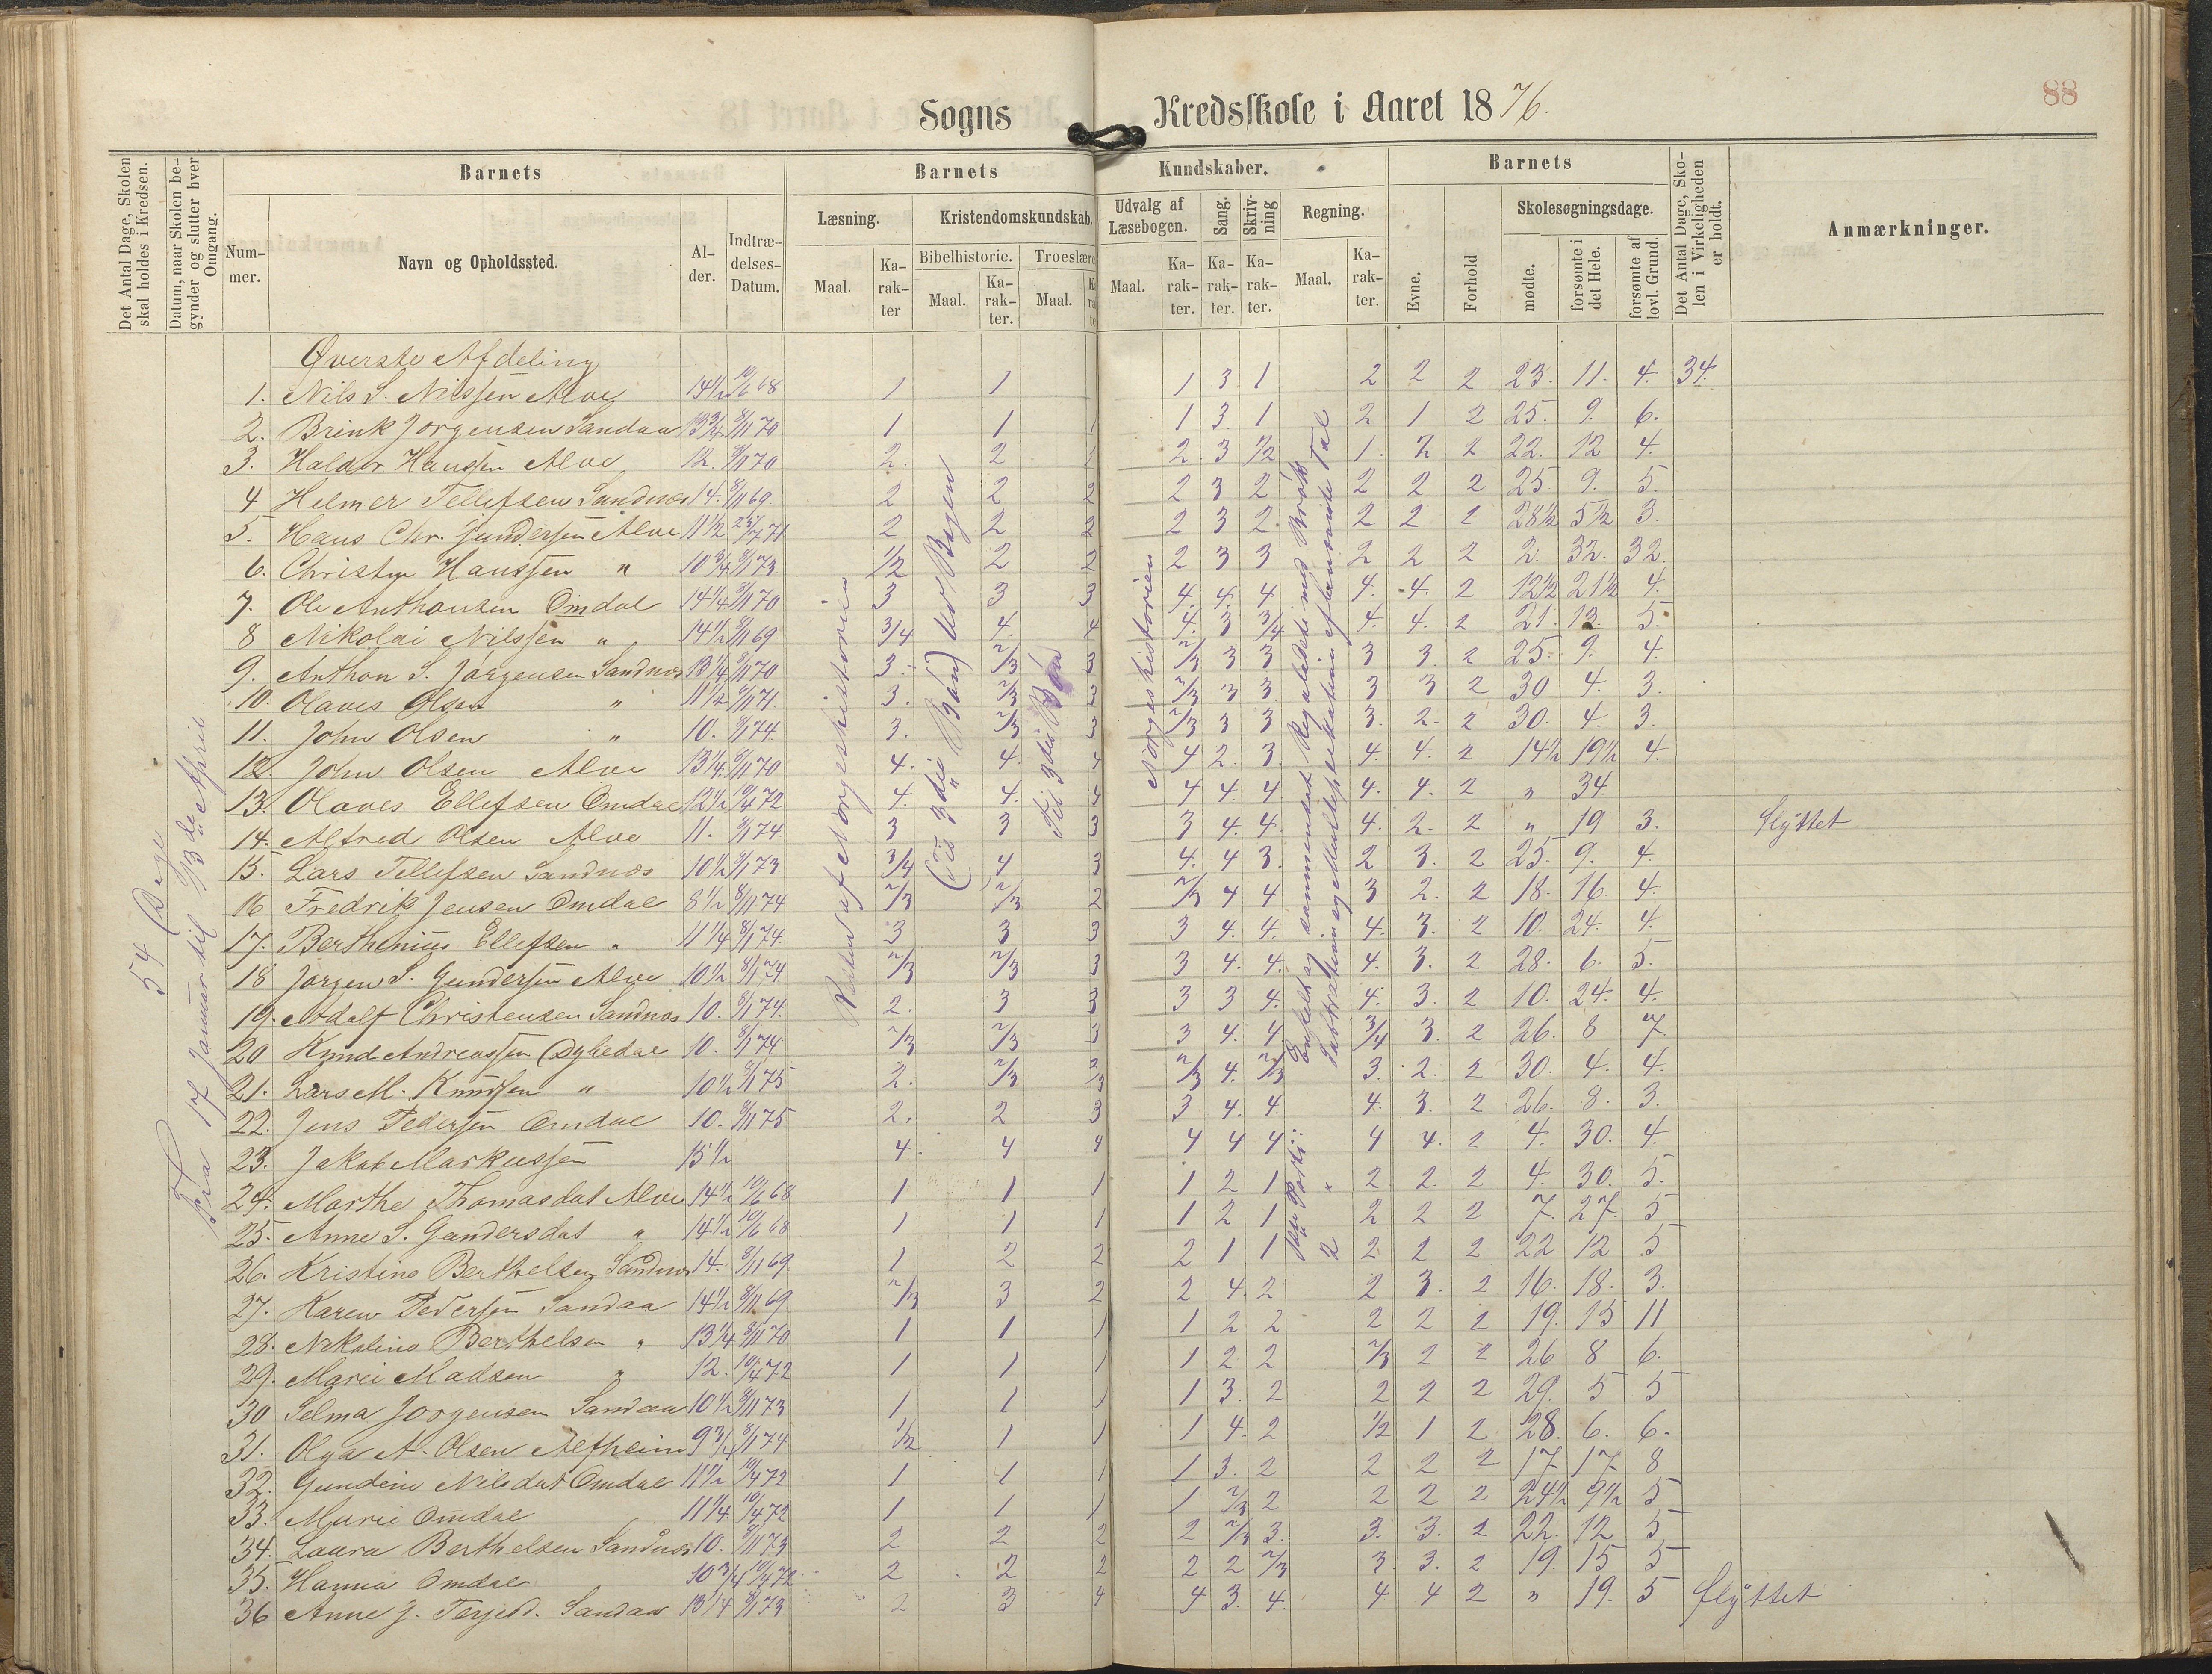 88
Sogns Kredsskole i Aaret 1876.
Det Antal Dage, Skolen skal holdes i Kredsen.
Datum, naar Skolen begynder og slutter hver Omgang.
Barnets
Nummer.
Navn og Opholdssted.
Alder.
Indtrædelses-Datum.
Barnets Kundskaber.
Læsning.
Maal.
Karakter
Kristendomskundskab.
Bibelhistorie.
Maal.
Karakter.
Troeslære
Maal.
Udvalg af Læsebogen.
Maal.
Karakter.
Sang.
Karakter.
Skrivning
Karakter.
Regning.
Maal.
Karakter.
Barnets
Evne.
Forhold
Skolesøgningsdage.
mødte.
forsømte i det Hele.
forsømte af lovl. Grund.
Det Antal Dage, Skolen i Virkeligheden er holdt.
Anmærkninger.
54 Dage
Fra 17 Januar til 3de April
Norgeshistorien
Til 3die Bøn
Øverste Afdeling
1. Nils S. Nilssen Alve 14½ 10/6 68 1 1 1 3. 1 2 2 2 23. 11. 4. 34.
2. Brink Jorgensen Sandaa 13¾ 8/11 70 1 1 1 1 3. 1 2 1 2 25. 9. 6.
3. Haldor Hanssen Alve 12. 8/11 70 2. 2 1 2 3 ½ 1. 2 2 22. 12 4.
4 Helmer Tellefsen Sandnæs 14. 8/11 69. 2 2 2 2 3 2 2 2 2 25. 9. 5.
5. Hans Chr. Gundersen Alve 11½ 2 2 2 2 3 2. 2 2 2 28½ 5½ 3.
6. Hanssen " 10¾ 8/1 73 ½ 2 2 2 3 3 2 2 2 2. 32. 32.
7. Ole Anthonsen Omdal 14¼ 8/11 70 3 3 3 4. 4. 4 4. 4. 2 12½ 21½ 4.
8 Nikolai Nilssen " 14½ 8/11 69. 3/4 4. 4 4. 3 3/4 4. 4. 2 21. 13. 5.
9. Anthon S. Jørgensen Sandnæs 13¼ 8/11 70 3. 2/3 3 2/3 3 3 3 3. 2 25. 9. 4.
10. Olaves Olsen " 11½ 3. 2/3 3 2/3 3 3. 3 3 2 30 4. 3.
11. John Olsen " 10. 8/1 74. 3. 2/3 3 2/3 3 3 3. 2. 2 30. 4. 3.
12. John Olsen Alve 13¼ 8/11 70 4. 4. 4 4 2. 3. 4. 4. 2 14½ 19½ 4.
13. Olaves Ellefsen Omdal 12½ 10/4 72 4. 4. 4 4 4. 4. 4. 4. 2 " 34.
14. Alfred Olsen Alve 11. 8/1 74. 3 3 3 3 4. 4. 4. 2. 2 " 19 3. flyttet
15. Lars Tellefsen Sandnæs 10½ 8/1 73. 3/4 4 3 4. 4 3. 2 3. 2 25. 9. 4.
16 Fredrik Jensen Omdal 8½ 8/11 74 2/3 2/3 2 2/3 4 4 3 2. 2 18. 16. 4.
17. Berthinius Ellefsen " 11¼ 8/1 74. 3 3 3 3 4. 4. 4. 3. 2 10. 24. 4.
18 Jorgen S. Gundersen Alve 10½ 8/1 74 2/3 2/3 3 3 4. 4. 4. 3. 2 28. 6. 5.
19. Adolf Christensen Sandnæs 10. 8/1 74. 2. 3 3 3 3 4. 4. 3. 2 10. 24. 4.
20 Knud Andreassen Dybedal 10. 8/1 74. 2/3 2/3 3 3 4. 4 3/4 3. 2 26. 8 7.
21. Lars M. Knudsen " 10½ 8/1 75 2. 2/3 2/3 2/3 4. 2/3 3. 2. 2 30. 4. 4.
22. Jens Pedersen Omdal 10. 8/11 75 2. 2 3 3 4. 4. 4. 3. 2 26. 8. 3.
23. Jakob Markussen 15½ 4. 4 4 4 4 4 4 4. 2 4. 30. 4.
24. Marthe Thomasdat Alve 14½ 10/6 68 1 1 1 1 2 1 2 2. 2 4. 30. 5.
25. Anne S. Gundersdat " 14½ 10/6 68 1 1 1 1 2 1 2 2 2 7. 27. 5
26. Kristine Berthelsen Sandnæs 14. 8/11 69. 1 2 2 2 1 1 2 2 2 22 12 5
27. Karen Pedersen Sandaa 14½ 8/11 69. 2/3 3 2 2 4. 2 2 3. 2 16. 18. 3.
28. Nikoline Berthelsen " 13¼ 8/11 70 1 1 1 1 2 2 2 2 2 19. 15 11
29. Marei Madsen " 12. 10/4 72 1 1 1 1 2 2 2/3 2 2 26 8 6.
30 Selma Jorgensen Sandaa 10½ 8/11 73 1 1 1 1 3. 2 2 2 2 29. 5 5
31. Olga A. Olsen Alfheim 9¾ 8/1 74 ½ 1 1 1 4. 2 ½ 1 2 28. 6. 6.
32. Nilsdat Omdal 11½ 10/4 72 1 1 1 1 3. 2 2 2 2 17 17. 8
33. Marie Omdal 11¼ 10/4 72 1 1 1 1 2/3 2 2 2 2 24½ 9½ 5
34. Laura Berthelsen Sandnæs 10. 8/11 73 2 2 2 2 2/3 3. 3. 3. 2 22. 12 5
35. Hanna Omdal 10¾ 10/4 72 2 2 2 2 2 2/3 3. 3. 2 19. 15 5
36 Anne J. Terjesd. Sandaa 13¼ 8/1 73 2 3 4 4 3. 4. 4 4 2 " 19. 5 flyttet